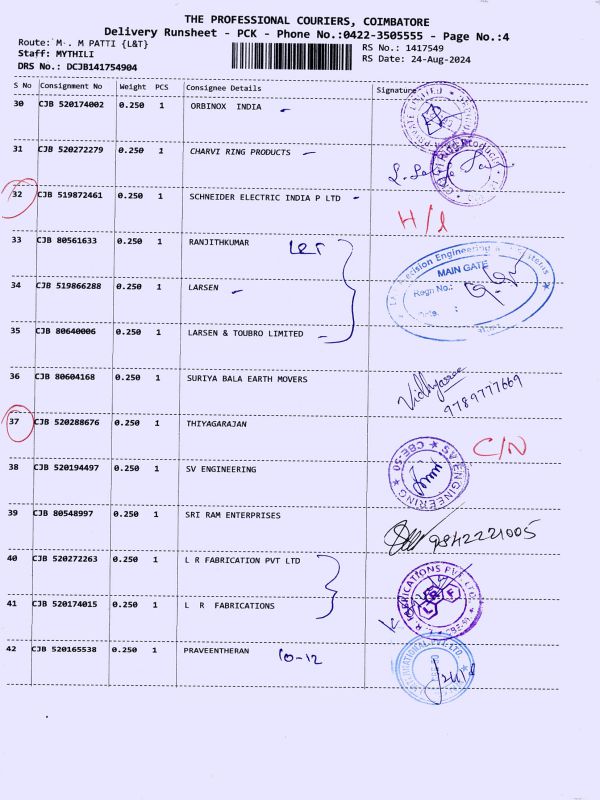 THE PROFESSIONAL COURIERS, COIMBATORE
Delivery Runsheet - PCK - Phone No.:0422-3505555 - Page No.:4
Route: M . M PATTI {L&T}
RS No.: 1417549
Staff: MYTHILI
RS Date: 24-Aug-2024
DRS No.: DCJB141754904
S No Consignment No Weight PCS Consignee Details Signature
30 CJB 520174002 0.250 1 ORBINOX INDIA
31 CJB 520272279 0.250 1 CHARVI RING PRODUCTS
32 CJB 519872461 0.250 1 SCHNEIDER ELECTRIC INDIA P LTD
33 CJB 80561633 0.250 1 RANJITHKUMAR
MAIN GATE
Regn No.:
34 CJB 519866288 0.250 1 LARSEN
35 CJB 80640006 0.250 1 LARSEN & TOUBRO LIMITED
36 CJB 80604168 0.250 1 SURIYA BALA EARTH MOVERS
9789777669
37 CJB 520288676 0.250 1 THIYAGARAJAN C/N
38 CJB 520194497 0.250 1 SV ENGINEERING
SV ENGINEERING ★ CBE-50 ★
39 CJB 80548997 0.250 1 SRI RAM ENTERPRISES
9842221005
40 CJB 520272263 0.250 1 L R FABRICATION PVT LTD
41 CJB 520174015 0.250 1 L R FABRICATIONS
L R F
42 CJB 520165538 0.250 1 PRAVEENTHERAN 10-12